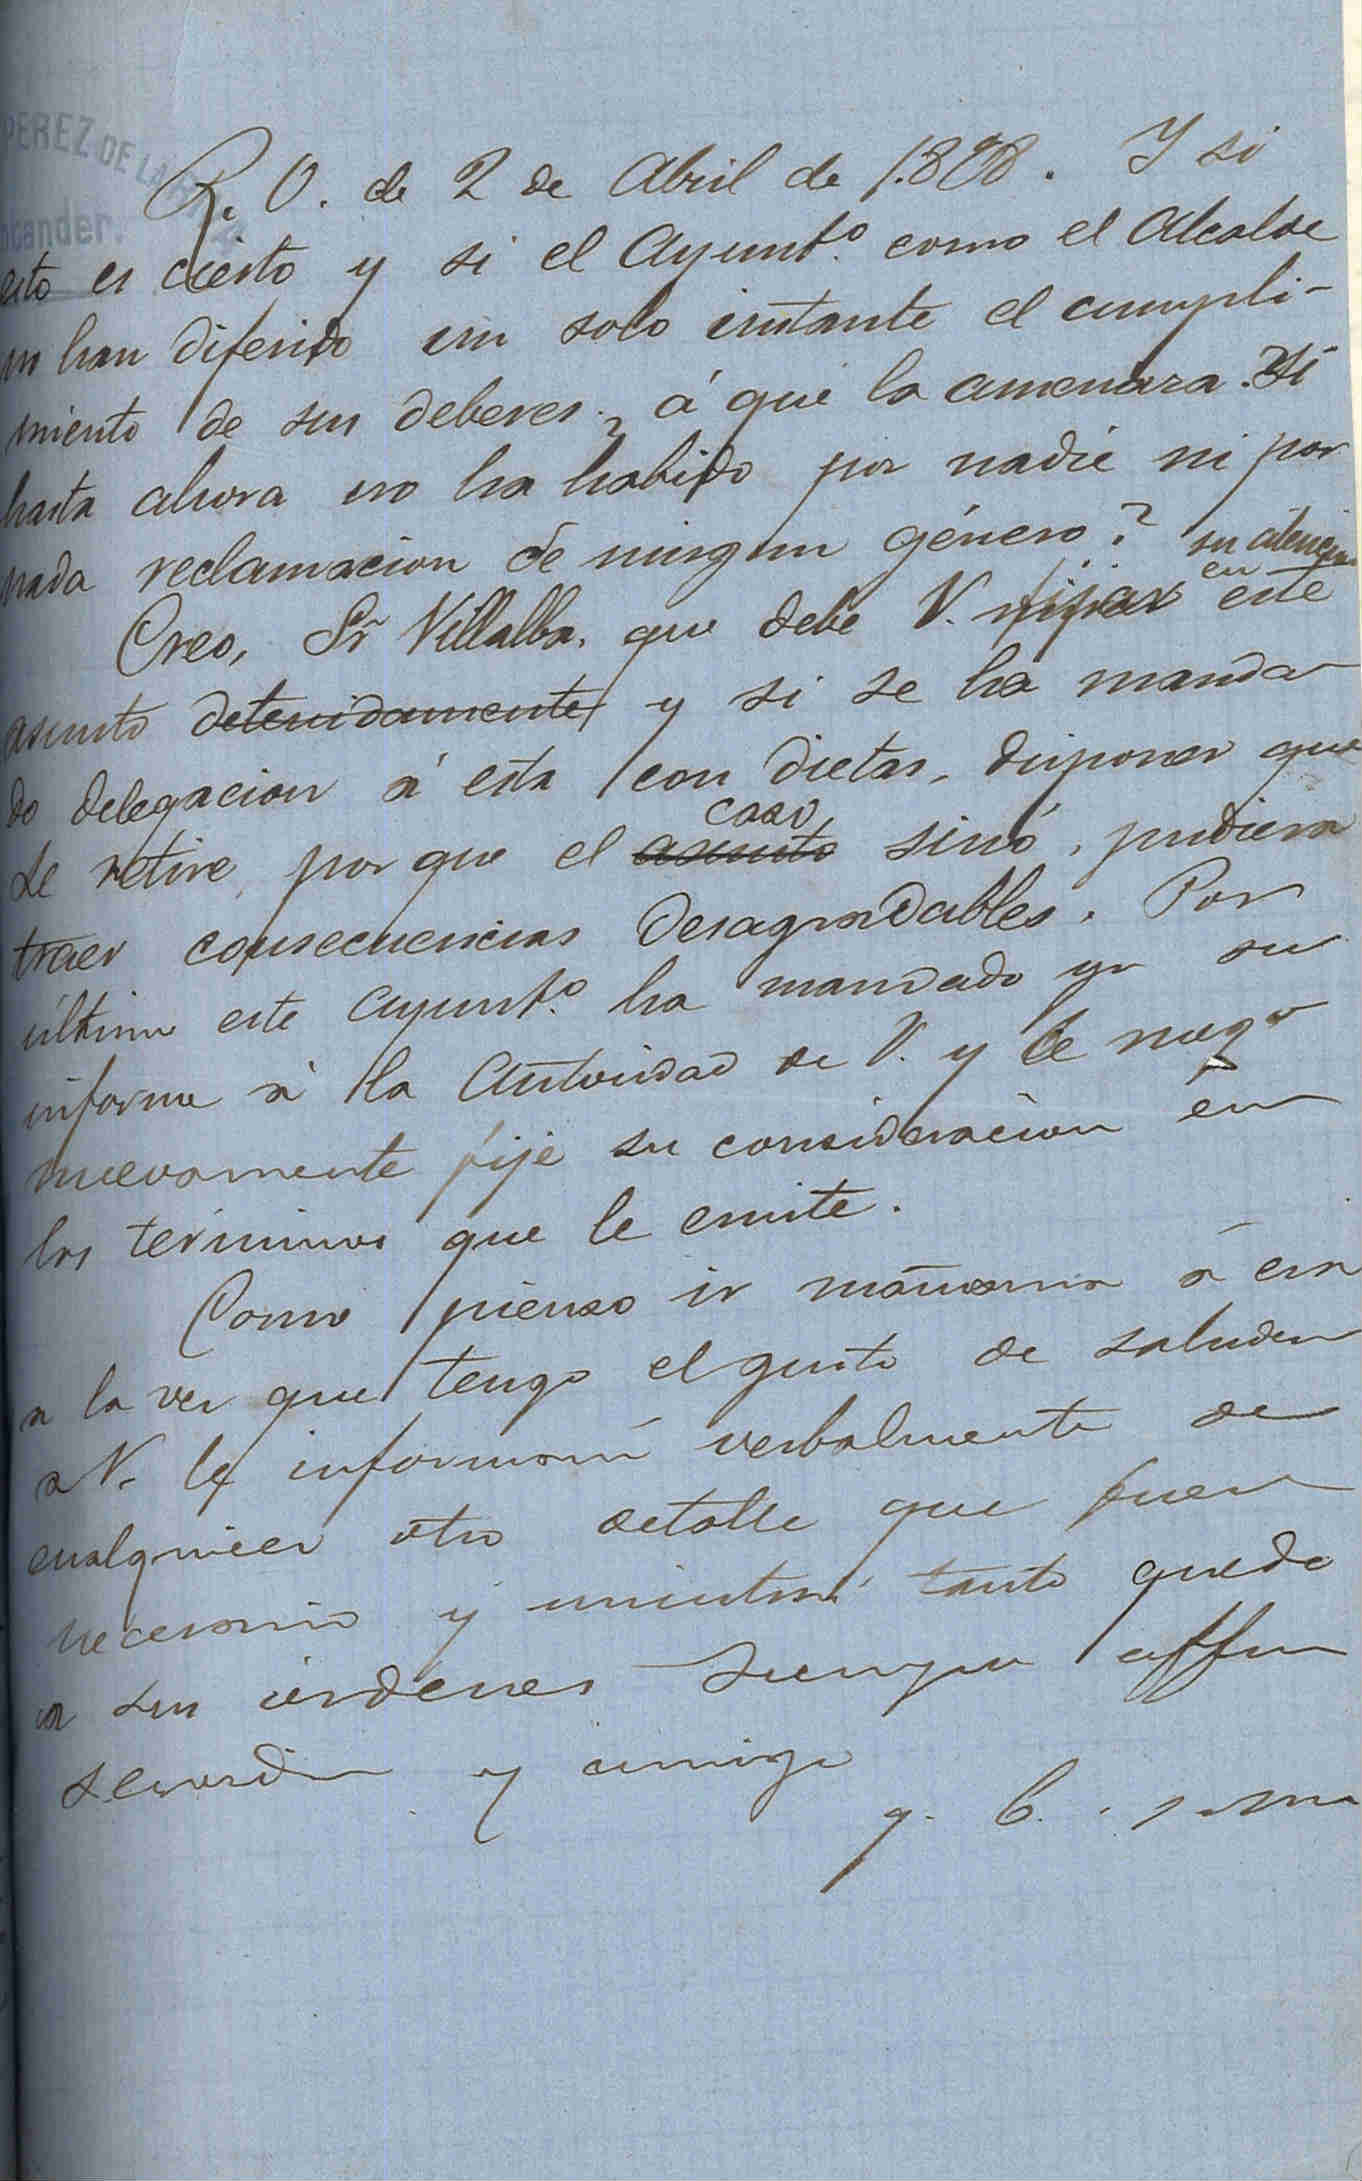 PEREZ DE LA
R. O. de 2 de Abril de 1.898. Y si
esto es cierto y si el Ayuntº. como el Alcalde
no han diferido un solo instante el cumpli-
miento de sus deberes ¿ á que la amenaza si
hasta ahora no ha habido por nadie ni por
nada reclamacion de ningun género?
Creo, Sr Villalba, que debe V. fijar su atencion en este
asunto detenidamente y si se ha manda
do delegacion á esta con dietas, disponer que
se retire, por que el asunto caso sinó, pudiera
traer consecuencias desagradables. Por
último este Ayuntº. ha mandado ya su
informe á la Autoridad de V. y le ruego
nuevamente fije su consideracion en
los terminos que le emite.
Como pienso ir mañana á esa
a la vez que tengo el gusto de saludar
a V. le informaré verbalmente de
cualquier otro detalle que fuera
necesario y mientras tanto queda
a sus órdenes siempre affmo
servidor y amigo
q. b. s. m.